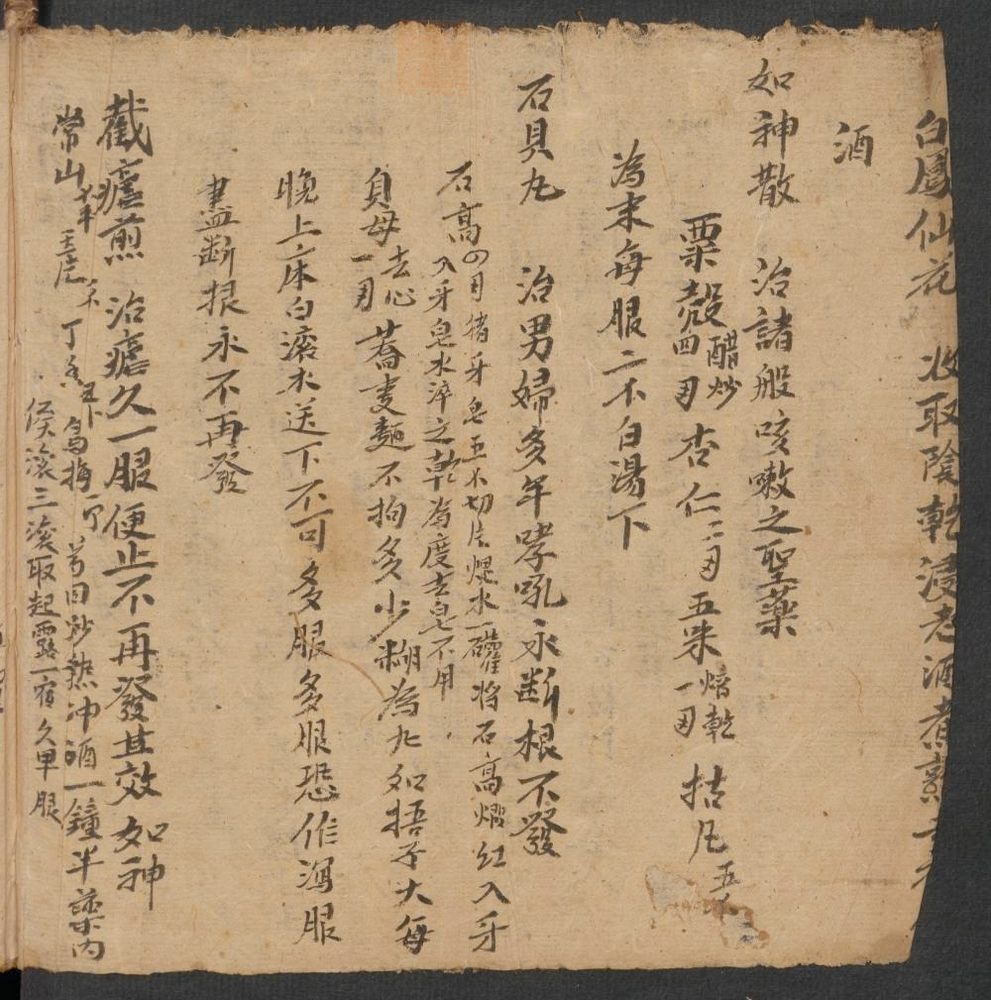 白鳳仙花 收取陰乾浸老酒煮熟
酒
如神散 治諸般咳嗽之聖藥
粟殼醋炒四刄 杏仁二刄 五朱焙乾一刄 拮凡五
為末每服二不白湯下
石貝丸 治男婦多年哮吼永断根不發
石膏四刄 猪牙皂五不切片煨水一礶将石膏煅红入牙
入牙皂水淬之乾為度去皂不用
貝母去心一刄 蕎麦麵不拘多少糊為丸如捂子大每
晚上床白滚水送下不可多服多服恐作瀉服
盡断根永不再發
截瘧煎 治瘧久一服便止不再發甚效如神
常山 丁香 烏梅 炒热冲酒一鐘半藥内
滚三滚取起露一宿久早服